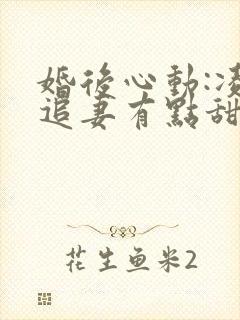 婚後心動:凌
追妻有點甜
花生鱼米2